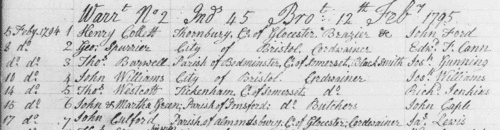 Warrt. No 2 Ind 45 Brot. 12th Feby 1795
5 Feby. 1794 1 Henry Collett Thornbury, C. of Glocester Brazier & John Ford
8 do. 2 Geo: Spurrier City of Bristol Cordwainer Edwd. T. Cann
do. do. 3 Thos. Barwell Parish of Bedminster, C. of Somerset, Black Smith Jos: Gunning
10 do. 4 John Williams City of Bristol. Cordwainer Jos: Williams
14 do. 5 Thos. Westcott Tickenham, C. of Somerset do. Richd. Jenkins
15 do. 6 John & Martha Green, Parish of do. Butchers John Caple
17 do. 7 John Parish of Almondsbury, C. of Glocester, Cordwainer Jas. Lewis